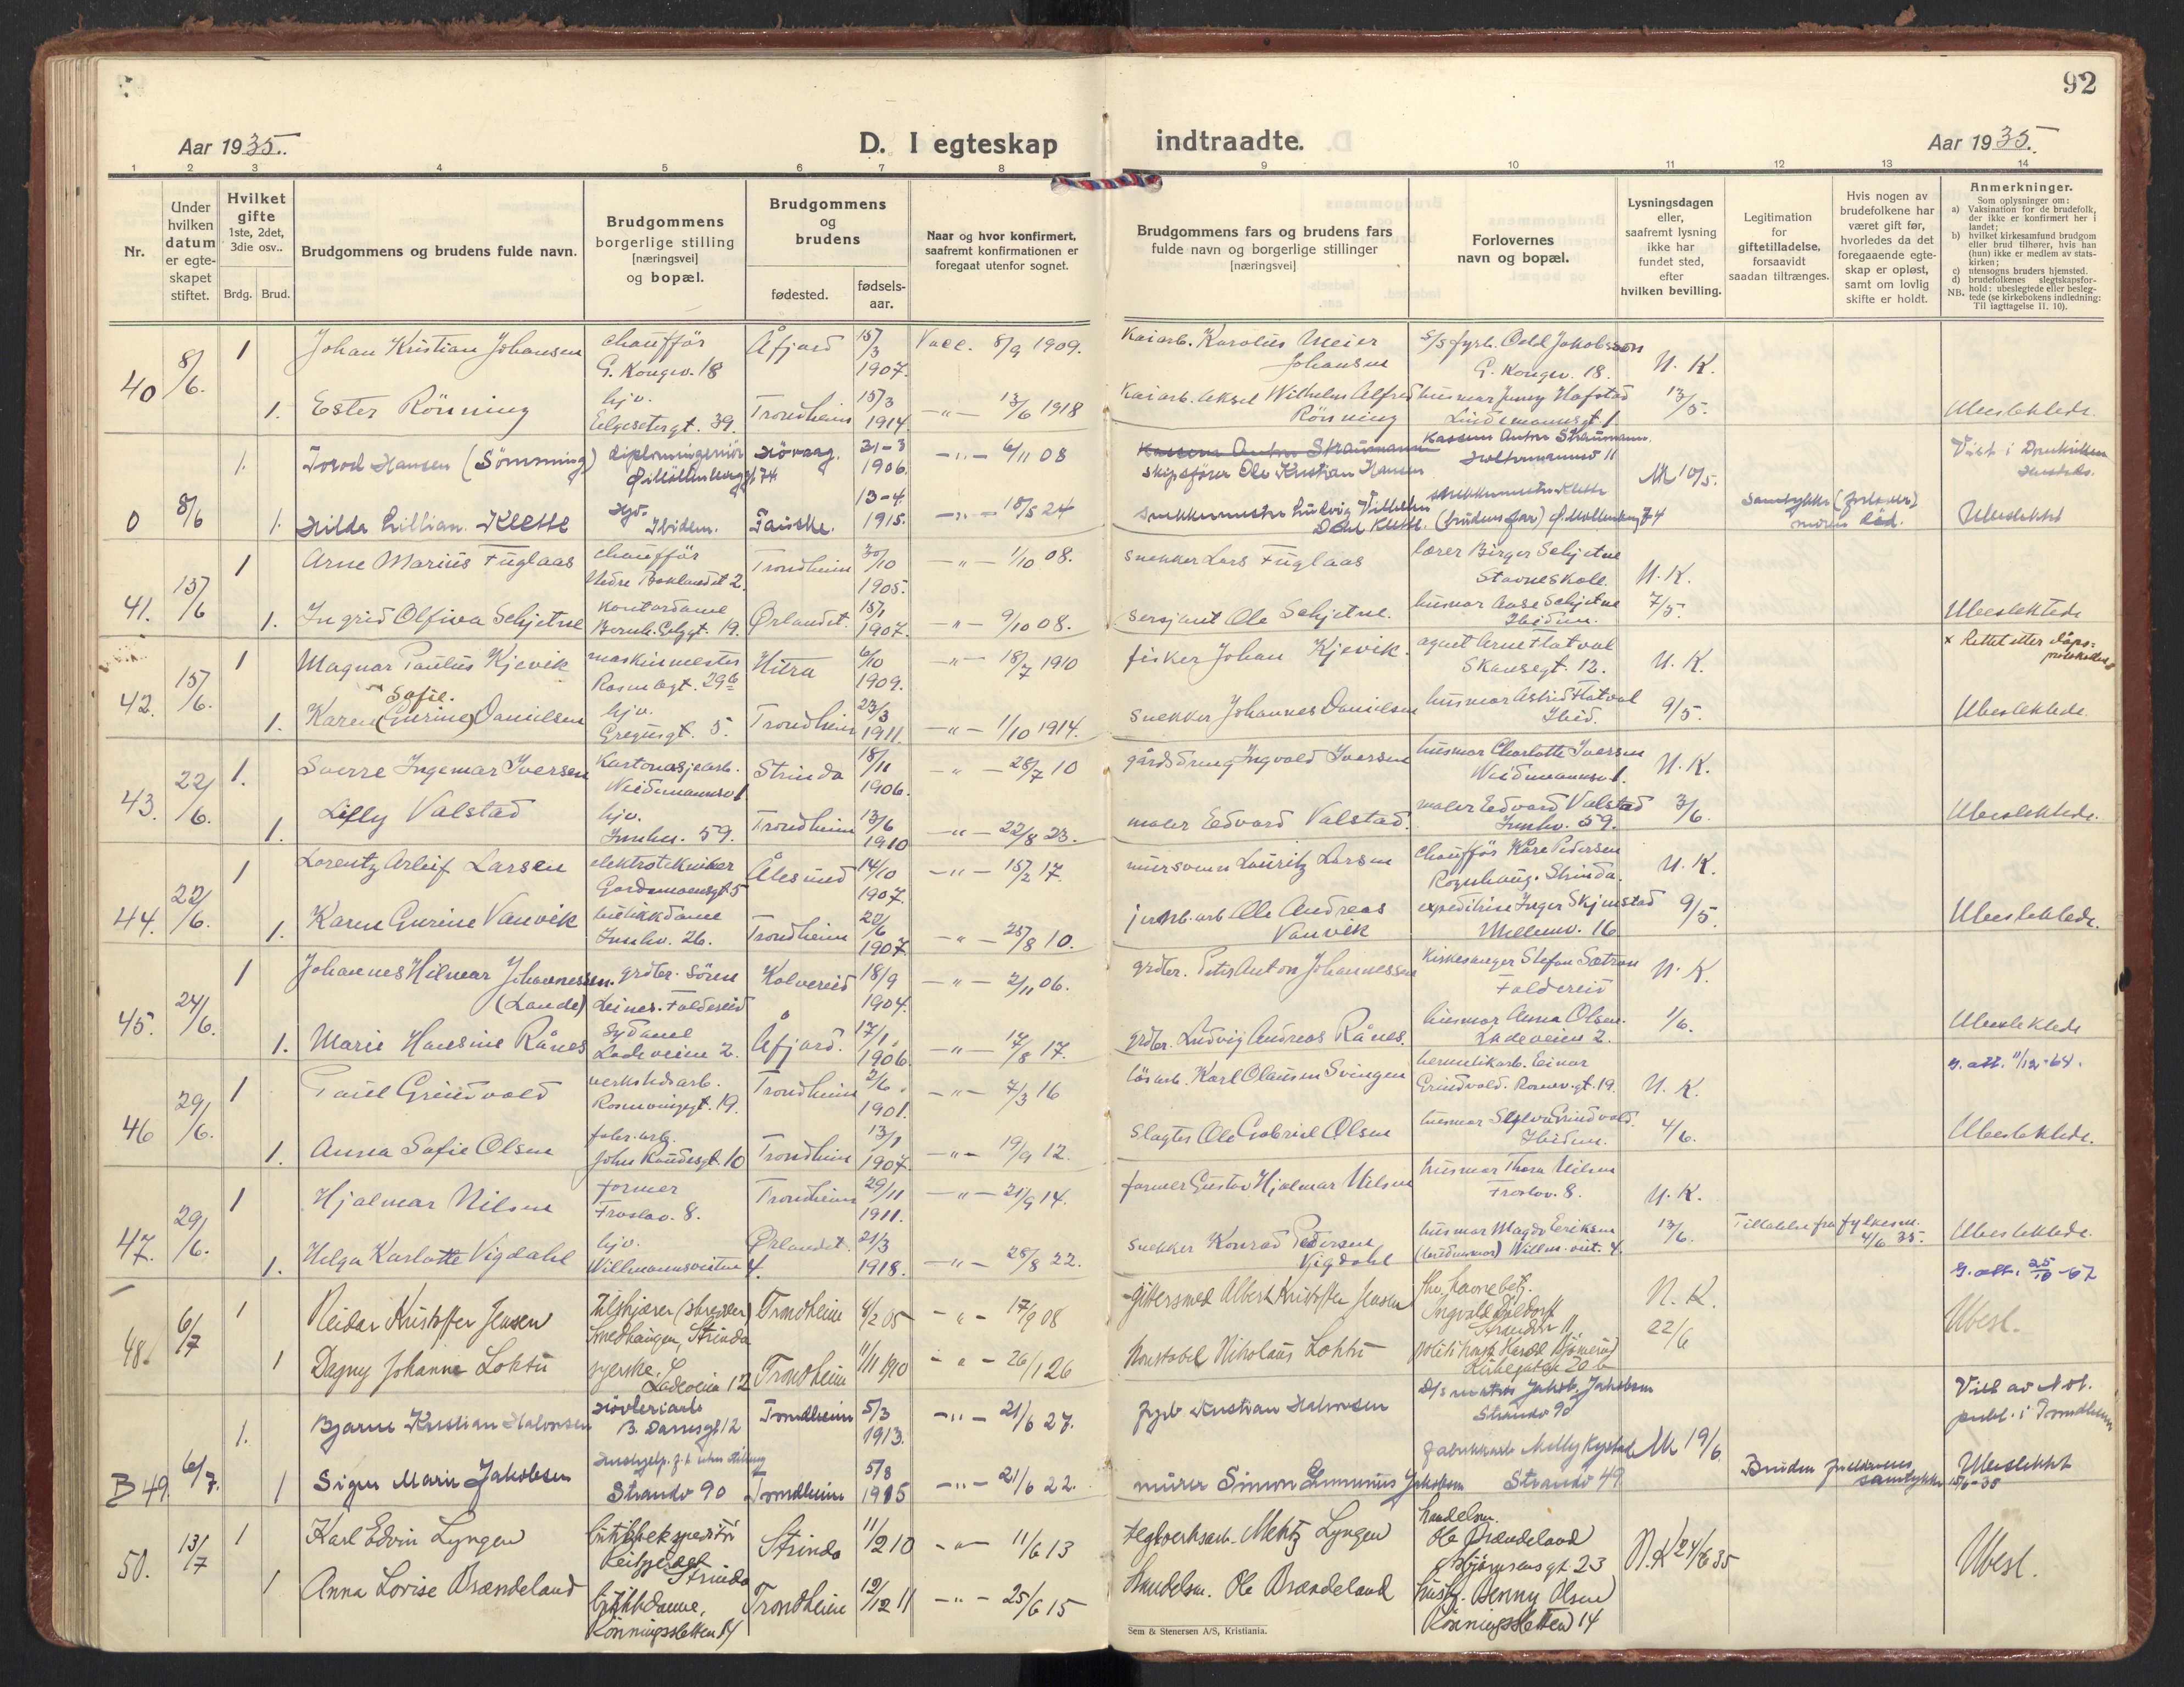 92
Aar 1935.
D. I egteskap
indtraadte.
Aar 1935.
1 2 3 4 5 6 7 8 9 10 11 12 13 14
Nr.
Under hvilken datum er egteskapet stiftet.
Hvilket gifte 1ste, 2det, 3die osv..
Brdg. Brud.
Brudgommens og brudens fulde navn.
Brudgommens borgerlige stilling [næringsvei] og bopæl.
Brudgommens og brudens
fødested.
fødsels-aar.
Naar og hvor konfirmert, saafremt konfirmationen er foregaat utenfor sognet.
Brudgommens fars og brudens fars fulde navn og borgerlige stillinger [næringsvei]
Forlovernes navn og bopæl.
Lysningsdagen eller, saafremt lysning ikke har fundet sted, efter hvilken bevilling.
Legitimation for giftetilladelse, forsaavidt saadan tiltrænges.
Hvis nogen av brudefolkene har været gift før, hvorledes da det foregaaende egteskap er opløst, samt om lovlig skifte er holdt.
Anmerkninger.
Som oplysninger om:
a) Vaksination for de brudefolk, der ikke er konfirmert her i landet;
b) hvilket kirkesamfund brudgom eller brud tilhører, hvis han (hun) ikke er medlem av statskirken;
c) utensogns bruders hjemsted.
d) brudefolkenes slegtskapsforhold: ubeslegtede eller beslegtede (se kirkebokens indledning:
NB. Til iagttagelse II. 10).
40 8/6. 1 Johan Kristian Johansen chauffør G. Kongev. 18 Åfjord 15/3 1907. Vacc. 8/9 1909. Kaiarb. Karolius Meier Johansen s/s fyrb. Odd Jakobsson G. Kongev. 18. N. K.
1. Ester Rönning hjv. Elgesetergt. 39. Trondheim 15/3 1914 -"- 13/6 1918 Kaiarb. Aksel Wilhelm Alfred Rönning husmor Jenny Hafstad Lindemannsgt 1 13/5. Ubeslektede.
0 8/6 1. Torod Hansen (Sömming) diplomingeniör Ø. Möllenberggt 74 Hövaag. 21-3 1906. -"- 6/11 08 Skipsfører Ole Kristian Hansen Kassem Anton Straumann M 10/5. Viet i Domkirken
1. Hilda Lillian Klette Hjv. Ibidem. Fauske. 13-4 1915. -"- 18/5 24 Snekkermester Ludvig Vilhelm Dahl Klette. (brudens far) Ø. Mollenberg 74 Samtykke moren död. Ubeslektet
41. 15/6 1 Arne Marius Fuglaas chauffør Nedre Baklandet 2. Trondheim 30/10 1905. -"- 1/10 08. snekker Lars Fuglaas lærer Birger Schjetne Stavne skole. N. K.
1. Ingrid Olfiva Schjetne kontordame Ørlandet. 15/1 1907. -"- 9/10 08. sersjant Ole Schjetne. husmor Aase Schjetne Ibidem. 7/5. Ubeslektede
42. 15/6. 1 Magnar Paulus Kjevik maskinmester Hitra 6/10 1909. -"- 18/7 1910 fisker Johan Kjevik. agent Arne Hatval Skansegt. 12. N. K. x Rettet etter dåps-protokollen
Sofie.
1. Karen (Gurine) Danielsen hjv. Gregusgt. 5. Trondheim 23/3 1911. -"- 1/10 1914. Snekker Johannes Danielsen husmor Astrid Hatval Ibid. 9/5. Ubeslektede.
43. 22/6. 1. Sverre Ingemar Iversen Kartonasjearb. Weidemannsv 1. Strinda 18/11 1906. -"- 28/7 10 gårdsdreng Ingvald Iversen husmor Charlotte Iversen Weidemannsv 1. N. K.
1. Lilly Valstad hjv. Innhv. 59. Trondheim 13/6 1910 -"- 22/8 23. maler Edvard Valstad. maler Edvard Valstad Innhv. 59. 3/6. Ubeslektede.
44. 22/6. 1 Lorentz Arleif Larsen elektrotekniker Gardemoensgt 5 Ålesund 14/10 1907. -"- 15/2 17. mursvenn Lauritz Larsen chauffør Kåre Pedersen Strinda. N. K.
1. Karen Gurine Vanvik butikkdame Innhv. 26. Trondheim 20/6 1907. -"- 25/8 10. jernb.arb Ole Andreas Vanvik expeditrise Inger Skjemstad Mellemv. 16 9/5. Ubeslektede.
45. 24/6. 1 Johannes Hilmar Johannessen. (Lande) grdbr. Sören Leines. Foldereid Kolvereid 18/9 1904. -"- 2/11 06. grdbr. Peter Anton Johannessen kirkesanger Stefan Sætran Foldereid N. K.
1. Marie Hansine Rånes sydame Ladeveien 2. Åfjord. 17/1. 1906. -"- 17/8 17. grdbr. Ludvig Andreas Rånes. husmor Anna Olsen. Ladeveien 2. 1/6. Ubeslektede
46 29/6. 1 Paul Grindvold verkstedsarb. Rosenborggt. 19. Trondheim 2/6. 1901. -"- 7/3 16 lösarb. Karl Olausen Svingen hermetikarb. Einar Grindvold. N. K. g. att. 11/12-64.
1. Anna Sofie Olsen fabr. arb. Trondheim 13/1 1907. -"- 19/9 12. Slagter Ole Gabriel Olsen husmor Grindvold. Ibidem. 4/6. Ubeslektede.
47. 29/6. 1 Hjalmar Nilsen former Frostav. 8. Trondheim 29/11 1911. -"- 21/9 14. former Gustav Hjalmar Nilsen husmor Thora Nilsen Frostav. 8. N. K.
1. Helga Karlotte Vigdahl hjv. Willmannsveiten 4. Ørlandet. 21/3 1918. -"- 28/8 22. snekker Konrad Pedersen Vigdahl husmor Magda Eriksen (brudens mor) Willm. veit. 4. 13/6. Tillatelse fra fylkesm. 4/6 35. Ubeslektede.
g. att. 25/10-67
48. 6/7 1 Reidar Kristoffer Jensen Tilskjærer (skredder) Smedhaugen, Strinda Trondheim 8/2 05 -"- 17/9 08 Gjitersmed Albert Kristoffer Jensen N. K. 22/6 Ubesl.
1 Dagny Johanne Loktu syerske. Ladeveien 12 Trondheim 11/11 1910 -"- 26/1 26 Konstabel Nikolaus Loktu
B 49. 6/7. 1. Bjarne Kristian Halvorsen Høvleriarb B. Darresgt 12 Trondheim 5/3 1913. -"- 21/6 27. fyrb Kristian Halvorsen Jakob Jakobsen Strandv 90 M 19/6 Viet av Not. publ. i Trondheim
1 Signe Marie Jakobsen Strandv 90 Trondheim 5/8 1915 -"- 21/6 22. murer Simon Jakobsen Strandv 49 Bruden foreldrenes samtykke 15/6-35 Ubeslektet
50. 13/7 1 Karl Edvin Lyngen Strinda Strinda 11/2 10 -"- 11/6 13 teglverksarb. Mentz Lyngen handelsm. Ole Brændeland gt 23 N.K 24/6 35 Ubesl.
1 Anna Lovise Brændeland butikkdame, Rönningsletten 14 Trondheim 12/12 11 -"- 25/6 15 handelsm. Ole Brændeland Jenny Olsen Rönningsletten 14
Sem & Stenersen A/S, Kristiania.